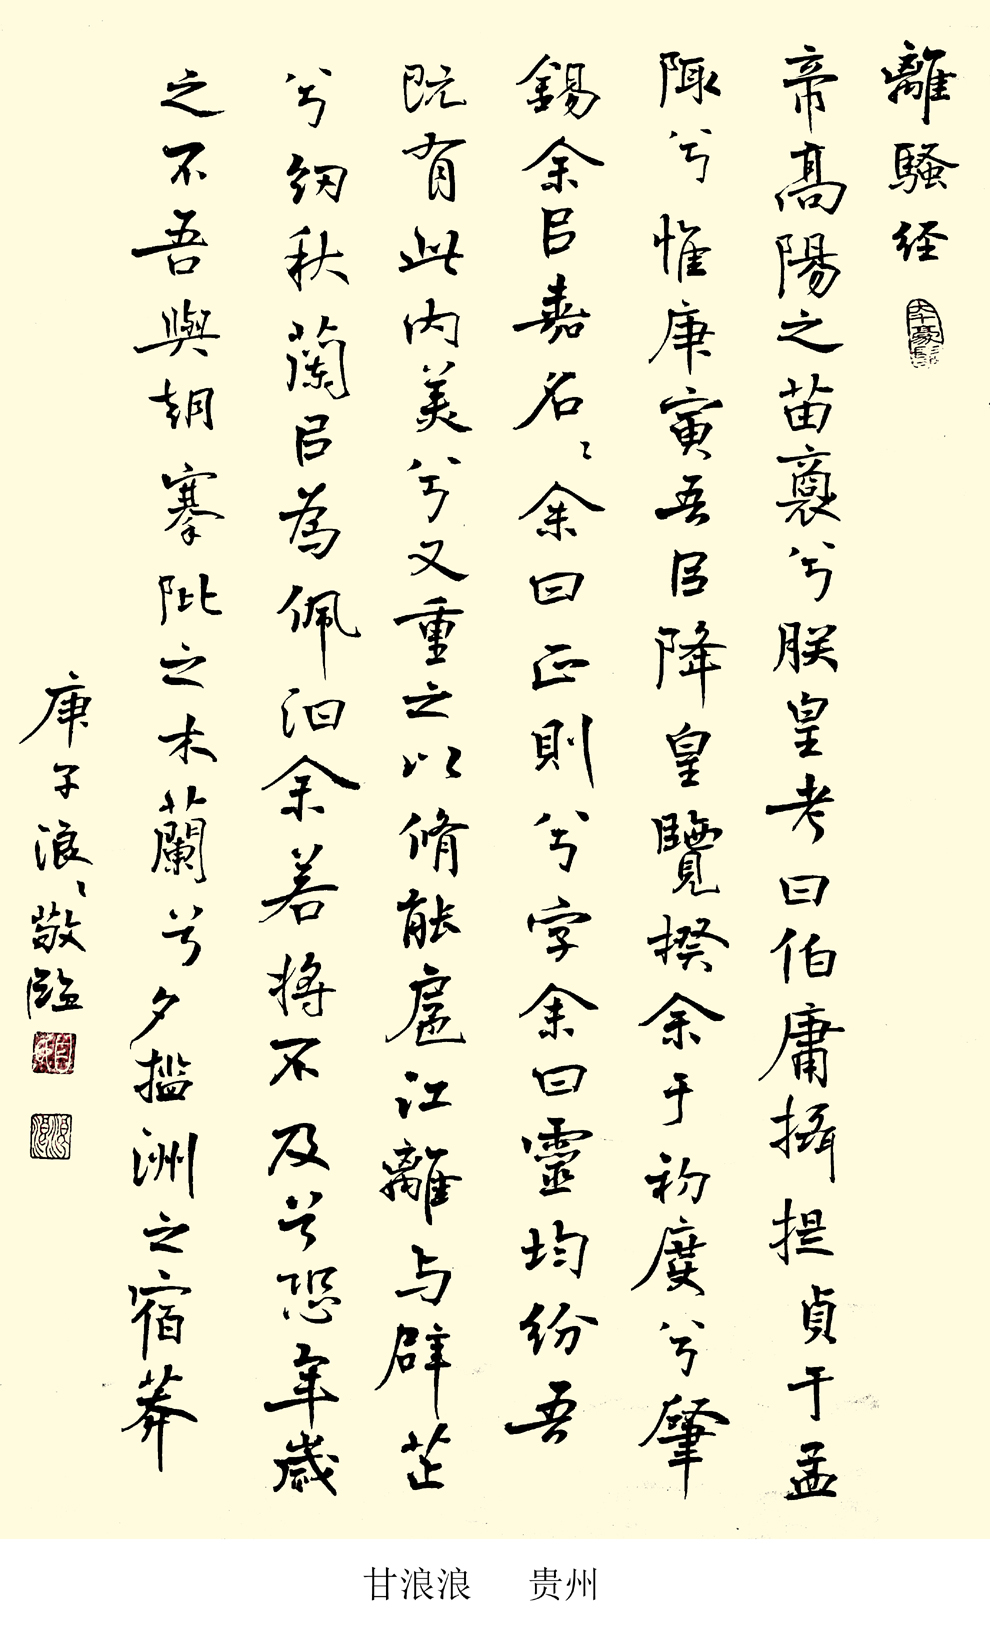 離騷经
帝髙陽之苗裔兮朕皇考曰伯庸攝提貞于孟
陬兮惟庚寅吾㠯降皇覽揆余于初度兮肇
錫余㠯嘉名〻余曰正則兮字余曰靈均紛吾
既有此内美兮又重之以脩能扈江離与辟芷
兮紉秋蘭㠯為佩汩余若將不及兮恐年歲
之不吾與朝搴阰之木蘭兮夕攬洲之宿莽
庚子浪〻敬臨
甘浪浪 贵州